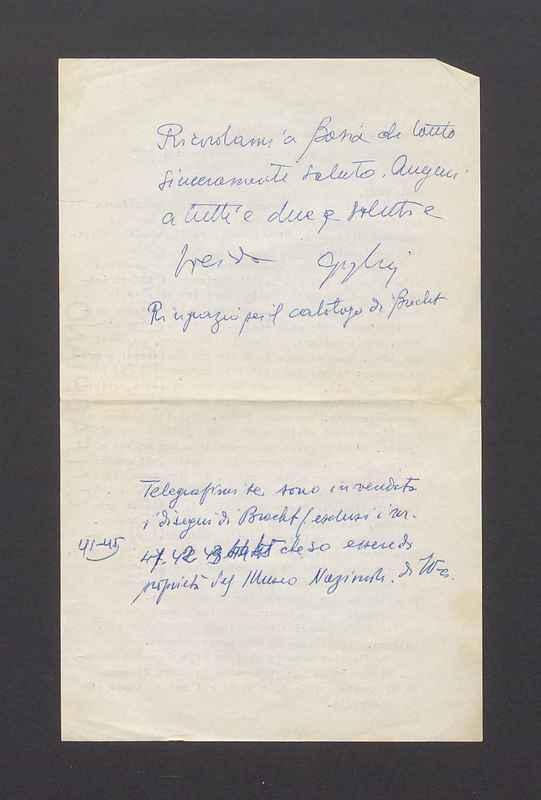 Ricordami a Bosia che lotito
sinceramente saluto. Auguri
a tutti e due e saluti e
Ringrazio per il catalogo di Brecht
Telegrafami se sono in vendita
i disegni di Brecht (esclusi i nr.
41-45
41 42 43 44 45 che so essere di
proprietà del Museo Nazionale di